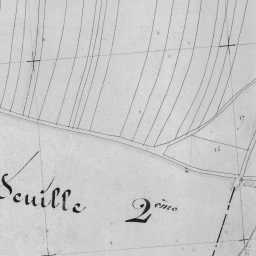 Feuille 2ème